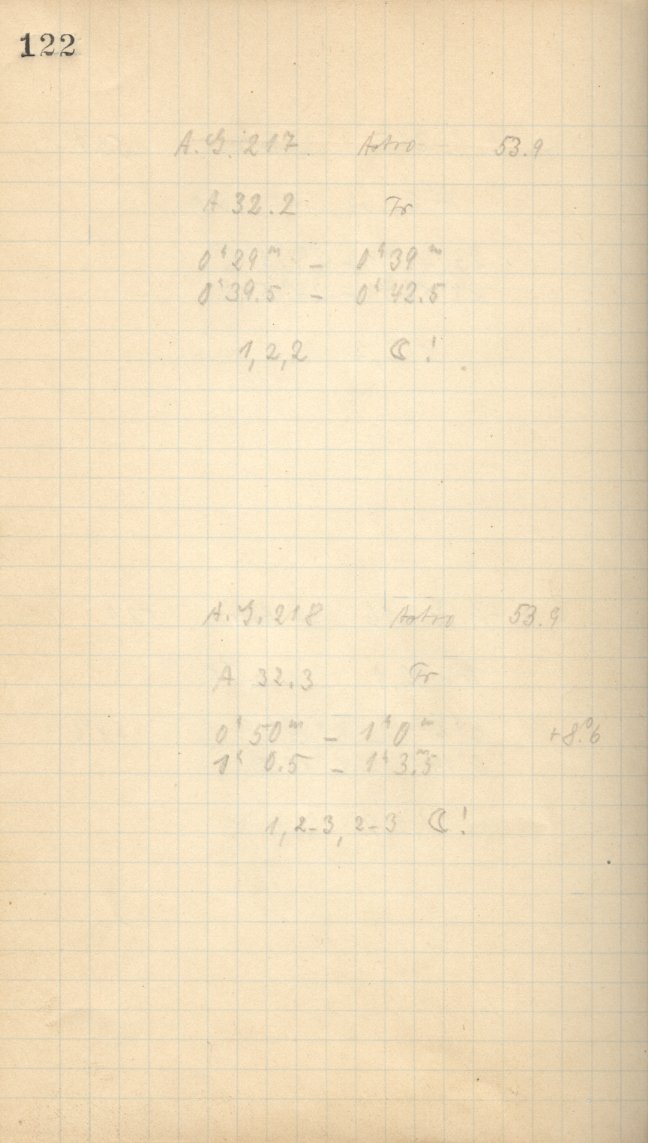 122
A.G. 217. Astro 53.9
A 32.2 Tr
0ʰ29ᵐ – 0ʰ39ᵐ
0ʰ39.5 – 0ʰ42.5
1, 2, 2 ☾!
A.G. 218 Astro 53.9
A 32.3 Tr
0ʰ50ᵐ – 1ʰ0ᵐ +8.°6
1ʰ 0.5 – 1ʰ3.ᵐ5
1, 2-3, 2-3 ☾!